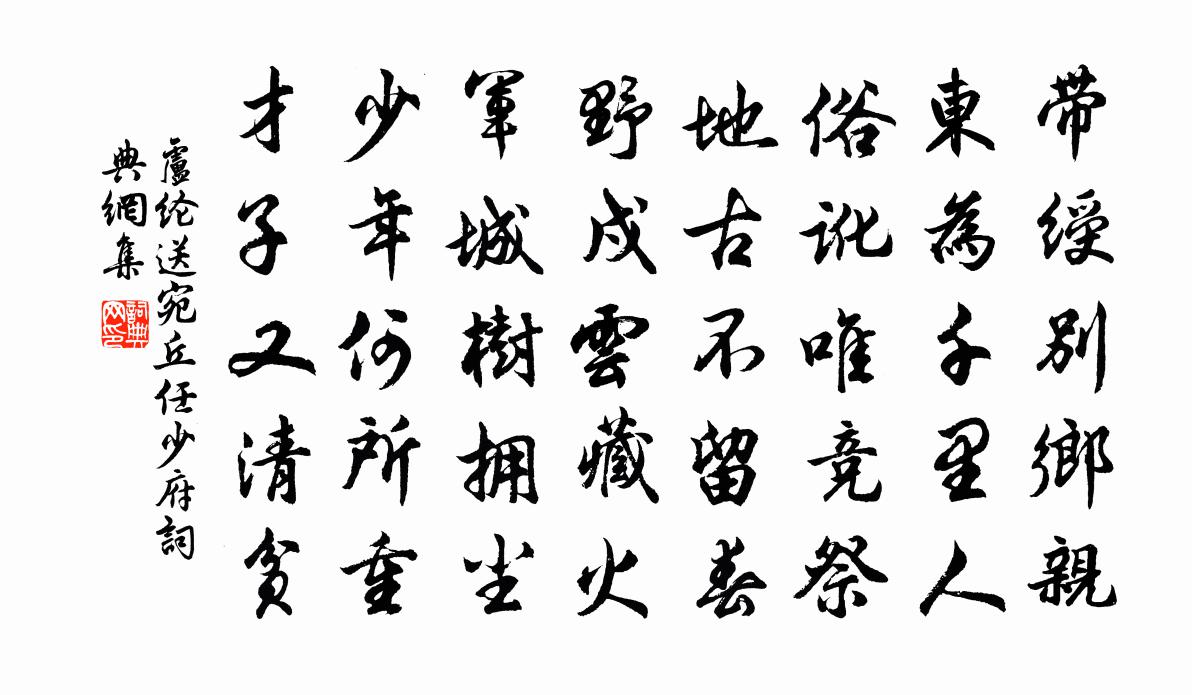 带绶別鄉親
東為千里人
俗訛唯竞祭
地古不留春
野戍雲藏火
軍城樹拥尘
少年何所重
才子又清贫
盧纶送宛丘任少府詞
典網集
詞典
网印